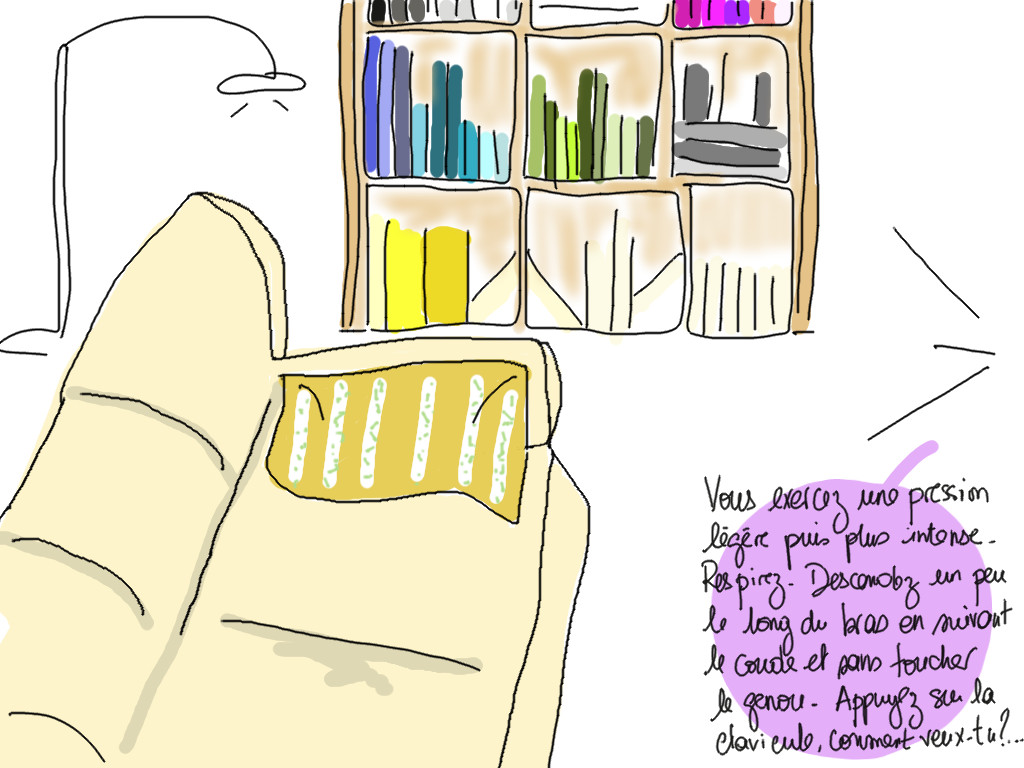 Vous exercez une pression
légère puis plus intense.
Respirez. Descendez un peu
le long du bras en suivant
le coude et sans toucher
le genou. Appuyez sur la
clavicule, comment veux-tu?...